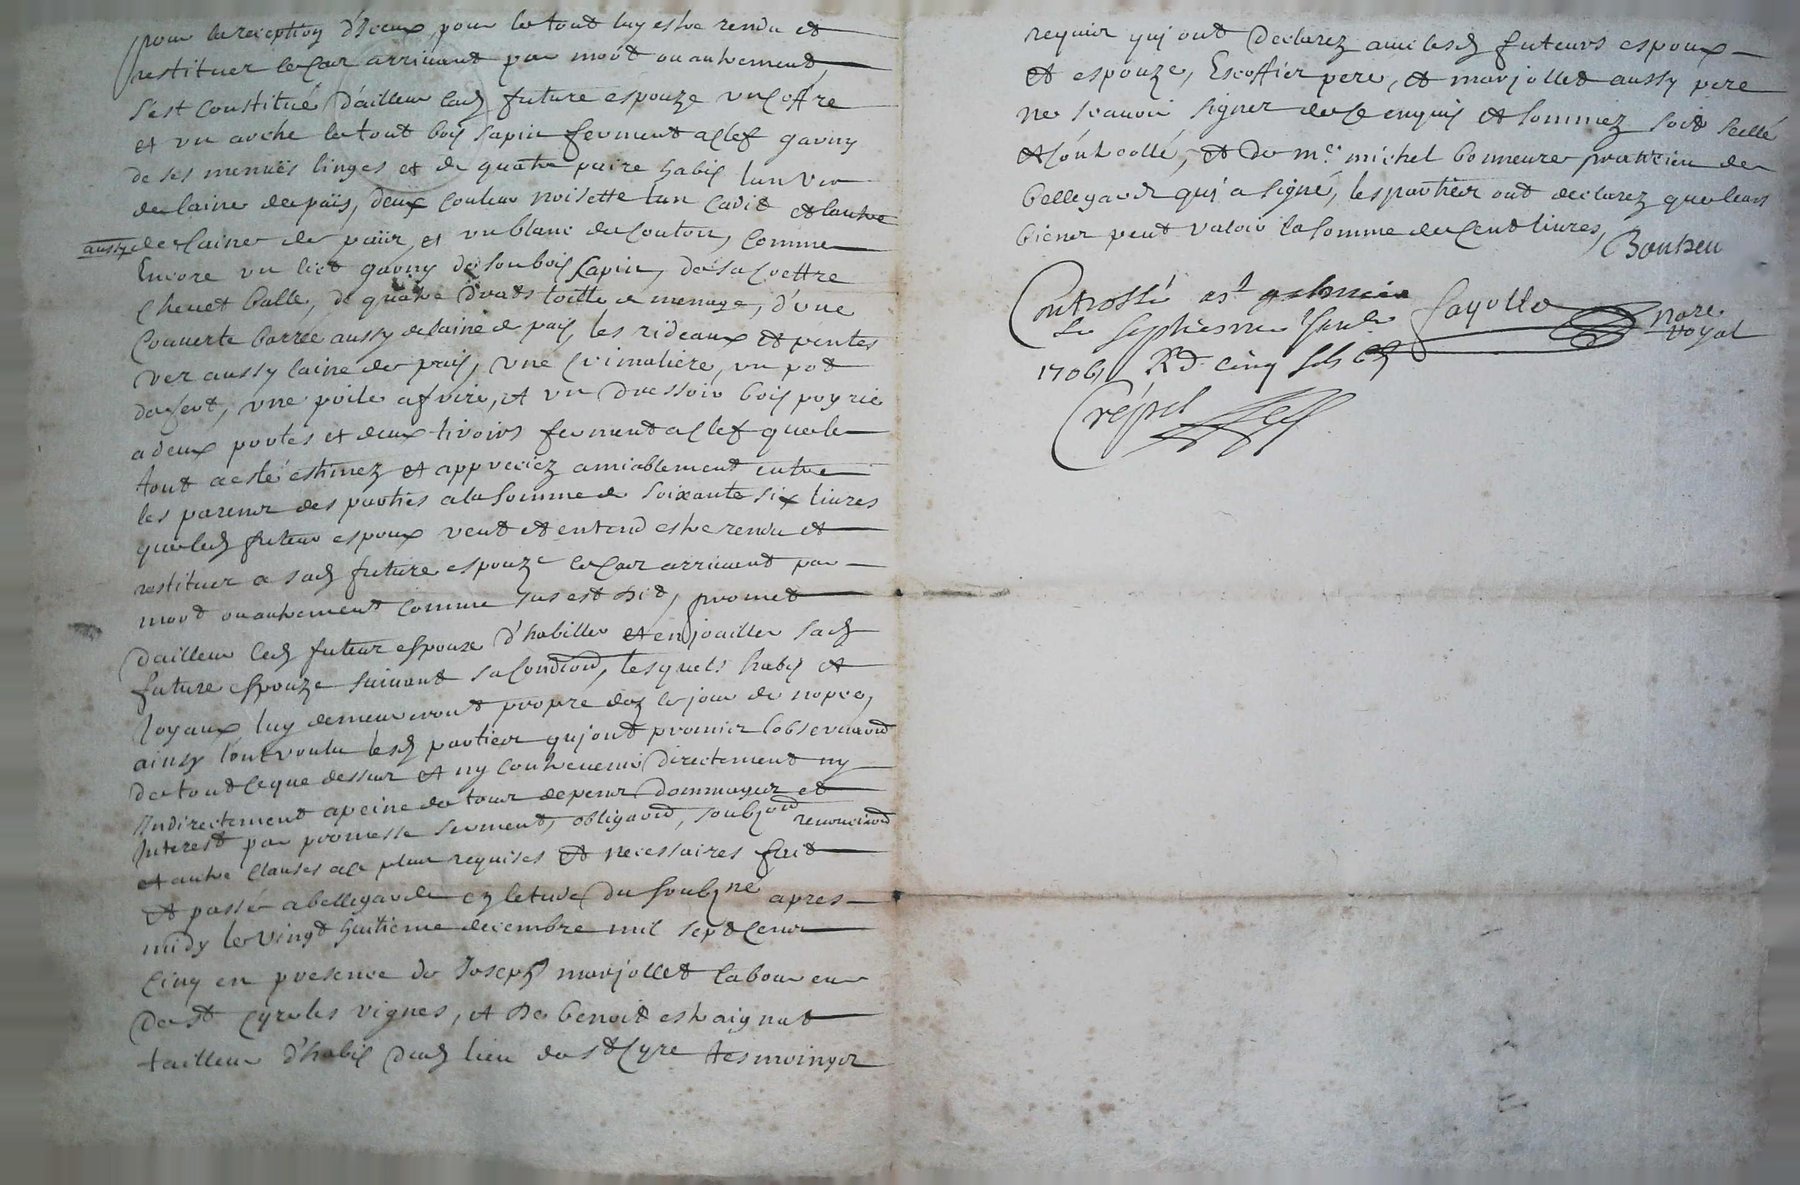 pour la reception d'Iceux pour le tout luy estre rendu et
restituer le Cas arrivant par mort ou autrement
s'est Constitué d'ailleur lad future espouze un Coffre
et un arche le tout bois sapin ferment a Clef garny
de ses menües linges et de quatre paire habis lun
de laine de païs, deux Couleur noisette lun Cadis et lautre
aussy de laine de païs, et un blanc de Couton, Comme
Encore un lict garny de son bois sapin, de sa Coettre
Chevet balle, de quatre draps toille de menage, d'une
Couverte barrée aussy de laine de païs, les rideaux et pentes
ver aussy laine de païs, une Crimaliere, un pot
de fert, une poile a frire, et un Dressoir bois
a deux portes et deux tiroirs ferment a Clef que le
tout a esté estimez et appreciez amiablement entre
les parens des parties a la Somme de soixante six livres
que led futur espoux veut et entend estre rendu et
restituer a sad future espouze le Cas arrivant par
mort ou autrement Comme sus est Dit, promet
Dailleur led futur espoux d'habiller et enjoailler sad
future espouze suivant sa Condiõn, lesquels habis et
Joyaux luy demeureront propre dez le jour de nopce,
ainsy lont voulu lesd parties qui ont promis lobservaõn
de tout Ceque dessus et ny Contrevenir Directement ny
Indirectement a peine de tous depens dommages et
Interest par promesse serment, obligaõn, soubzõn renonciaõn
et autre Clauses a ce plus requises et necessaires fait
et passé a bellegarde ez letude Du soubzne apres
midy le vingt huitieme decembre mil sept Cens
Cinq en presence de Joseph marjollet laboureur
de st Cyre les vignes, et De benoit
tailleur d'habis dud lieu de st Cyre tesmoings
requis qui ont Declarez avec lesd futeurs espoux
et espouze, Escoffier pere, et marjollet aussy pere
ne scauoir signer de Ce enquis et sommez soit seellé
et Controllé, et De me michel bonneure praticien de
bellegarde qui a signé, les parties ont declarez que leurs
biens peut valoir la somme de Cent livres,
Controllé
Le septiesme Janer
1706, Rd. Cinq sols
Fayolle
nore
royal
Crespil